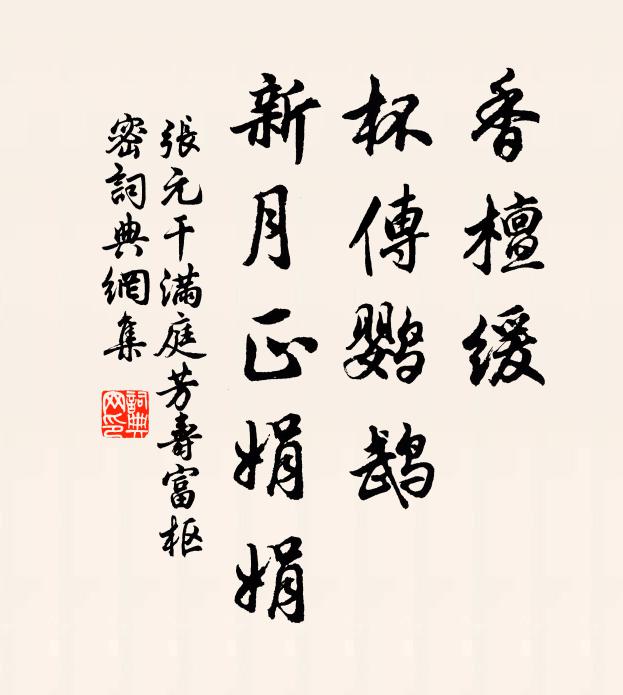 香檀緩
杯傳鹦鹉
新月正娟娟
張元干滿庭芳壽富枢
密詞典網集
詞典
网印